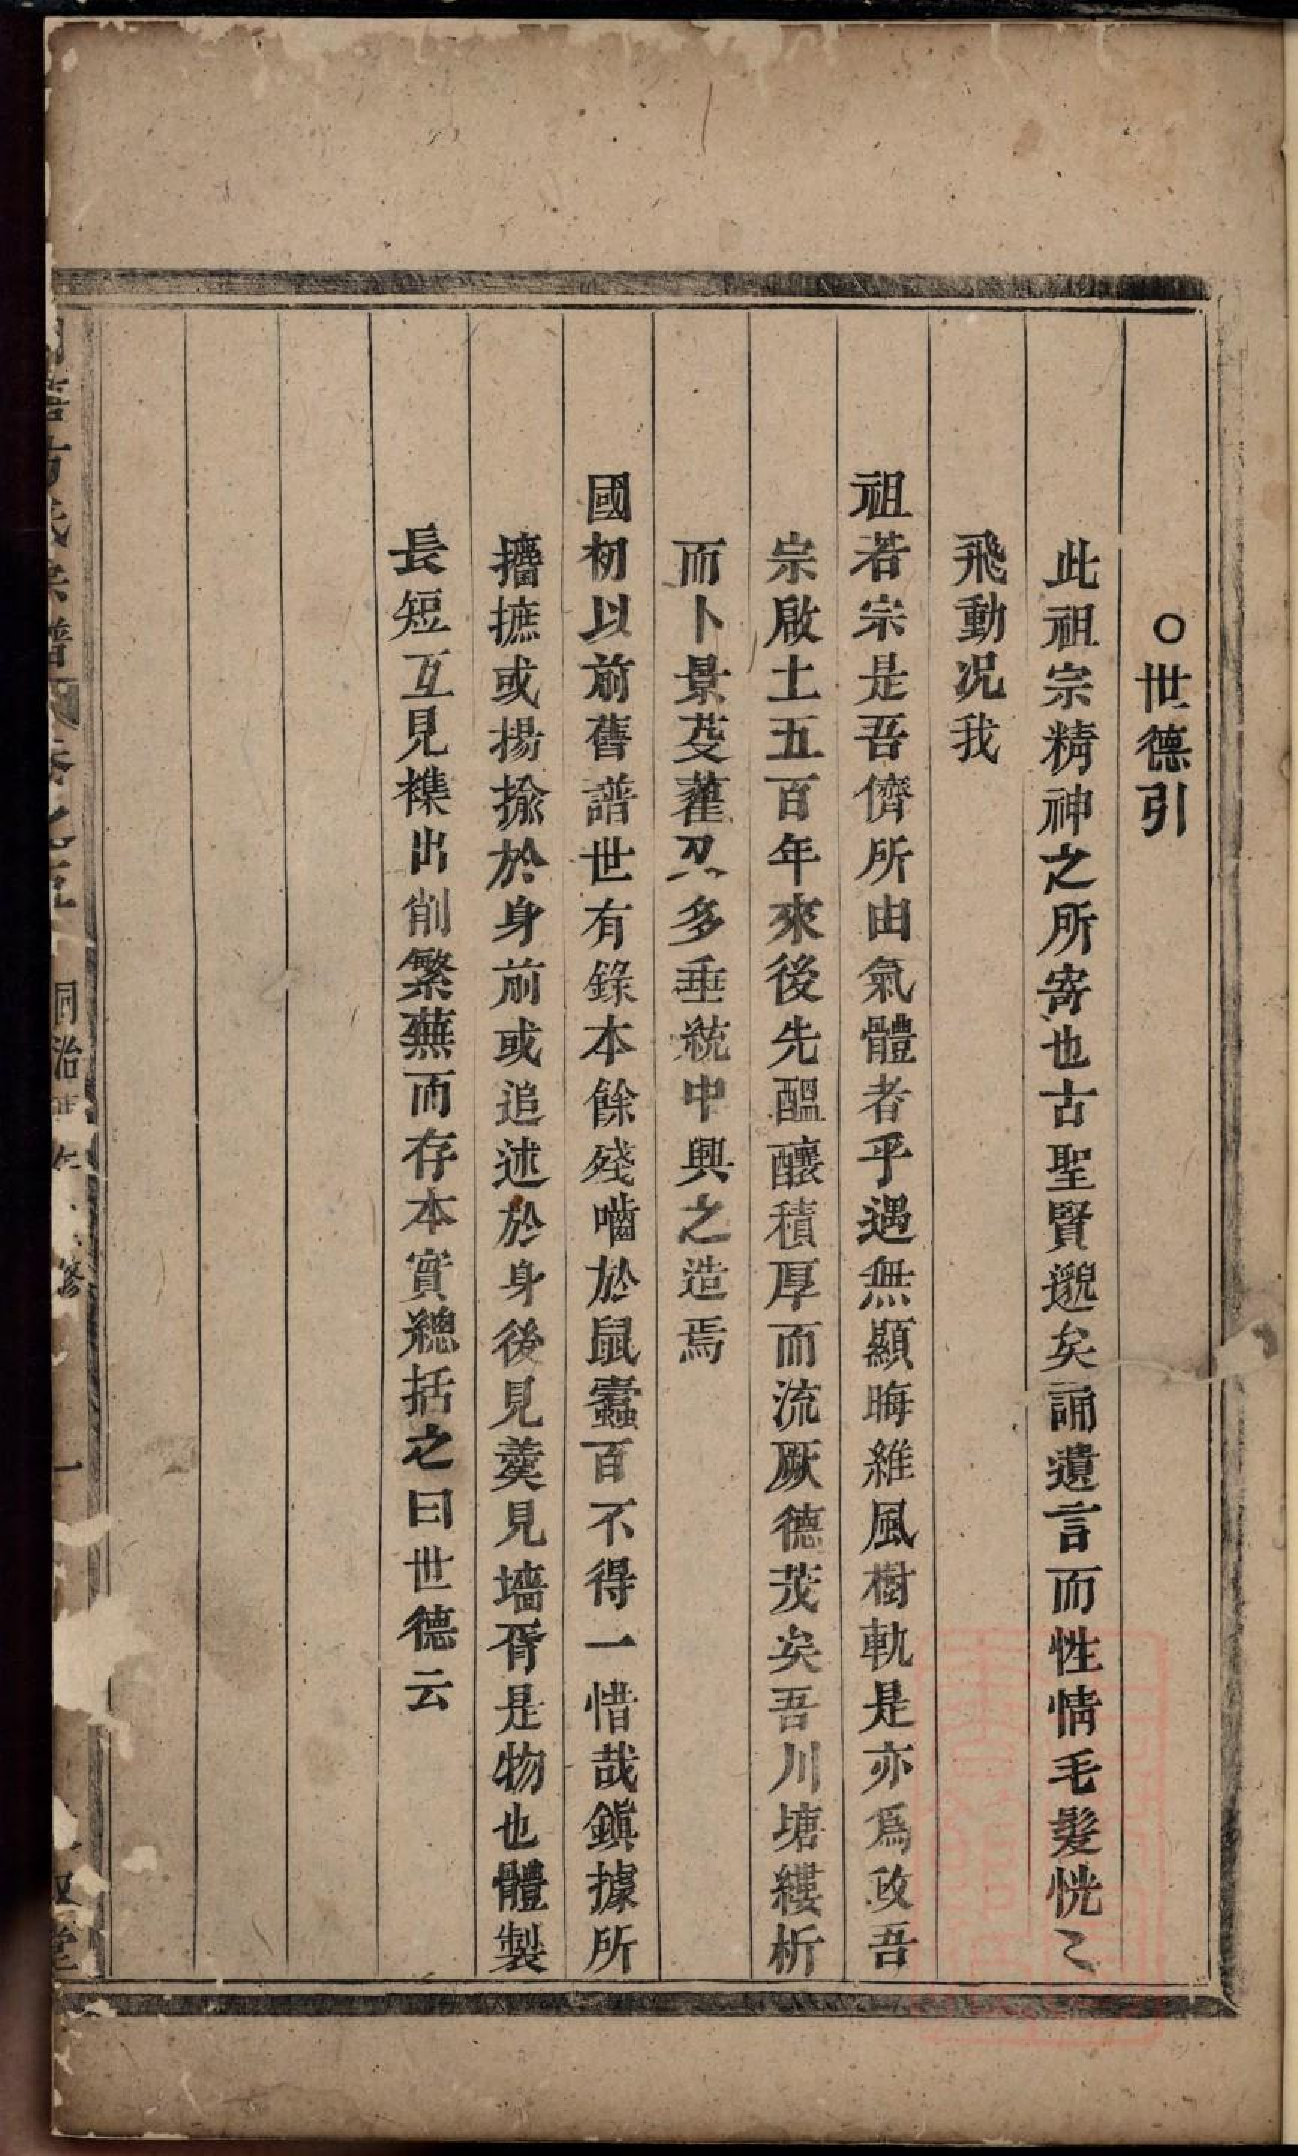 ○世德引
此祖宗精神之所寄也古聖賢邈矣誦遺言而性情毛髮恍〻
飛動况我
祖若宗是吾儕所由氣體者乎遇無顯晦維風樹軌是亦爲政吾
宗啟土五百年來後先醞釀積厚而流厥德茂矣吾川塘縷析
而卜景芟藋刃多垂統中興之造焉
國初以前舊譜世有錄本餘殘嚙於鼠蠹百不得一惜哉鎭據所
攟摭或揚揄於身前或追述於身後見羹見墻胥是物也體製
長短互見襍出削繁蕪而存本實總括之曰世德云
方氏宗譜 卷之五 同治 修 一 堂